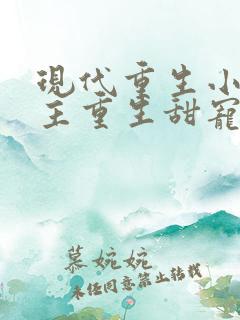 現代重生小
主重生甜寵
慕婉婉
未經同意禁止轉載